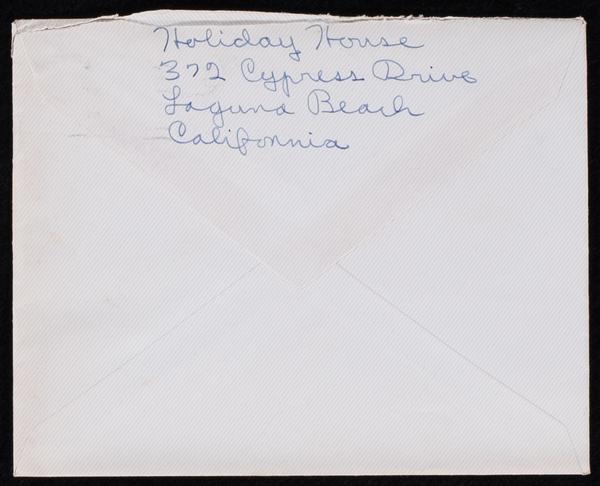 Holiday House
372 Cypress Drive
Laguna Beach
California